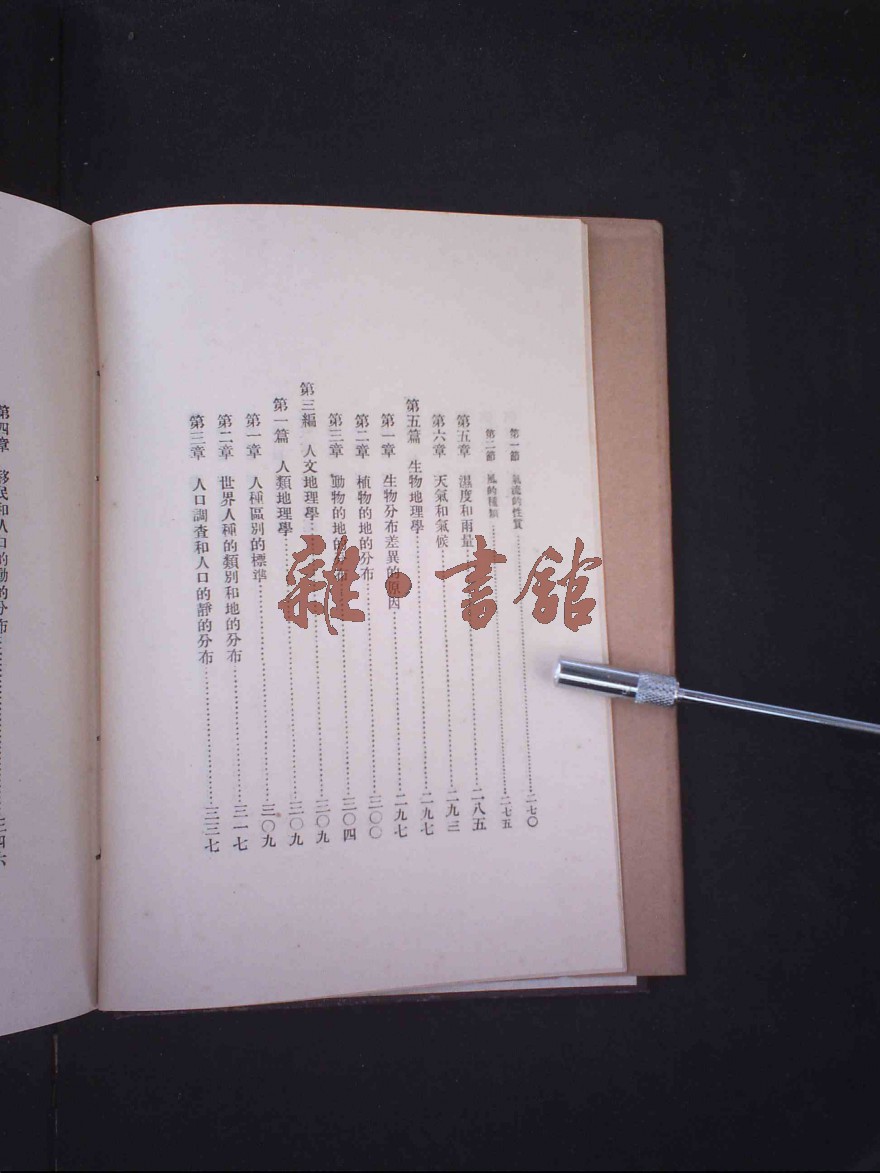 第一節 氣流的性質 二七〇
第二節 風的種類 二七五
第五章 濕度和雨量 二八五
第六章 天氣和氣候 二九三
第五篇 生物地理學 二九七
第一章 生物分布差異的原因 二九七
第二章 植物的地的分布 三〇〇
第三章 動物的地的分布 三〇四
第三編 人文地理學 三〇九
第一篇 人類地理學 三〇九
第一章 人種區別的標準 三〇九
第二章 世界人種的類別和地的分布 三一七
第三章 人口調查和人口的靜的分布 三三七
第四章 移民和人口的動的分布 三四六
雜·書館